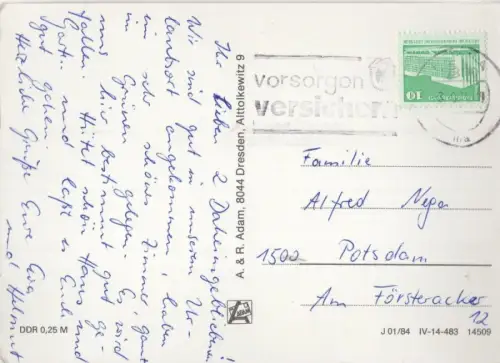 Ihr lieben 2 Daheimgebliebene!
Wir sind gut in unserem Ur-
laubsort angekommen, haben
ein sehr schönes Zimmer, ganz
im Grünen gelegen. Es wird
uns hier bestimmt gut ge-
fallen. Hütet schön Haus und
Garten und laßt es Euch
gut gehen.
Herzliche Grüße Eure Eva
und Helmut
DDR 0,25 M
A. & R. Adam, 8044 Dresden, Alttolkewitz 9
ADAM
vorsorgen
versichern
10
Familie
Alfred
1502 Potsdam
Am Försteracker
12
J 01/84 IV-14-483 14509